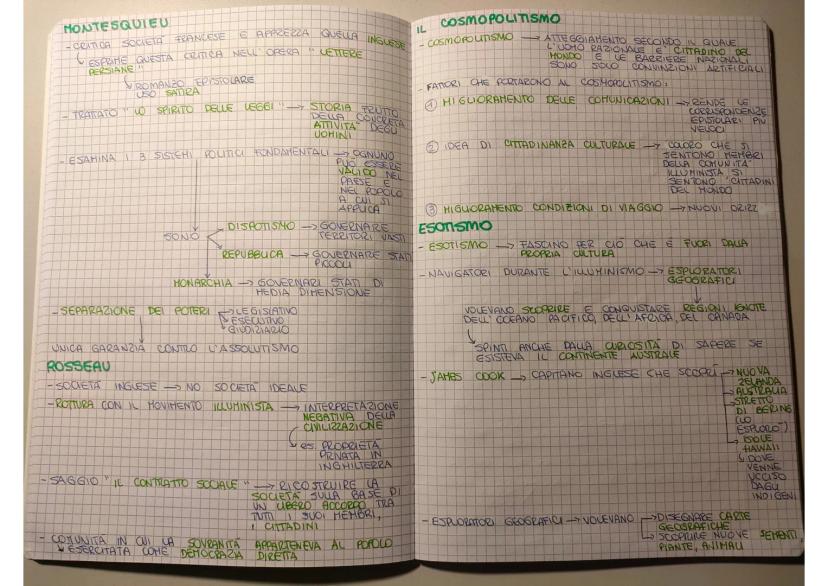 MONTESQUIEU
- CRITICA SOCIETA' FRANCESE E APPREZZA QUELLA INGLESE
ESPRIME QUESTA CRITICA NELL'OPERA "LETTERE
PERSIANE"
ROMANZO EPISTOLARE
USO SATIRA
- TRATTATO "LO SPIRITO DELLE LEGGI" → STORIA FRUTTO
DELLA CONCRETA
ATTIVITA' DEGLI
UOMINI
- ESAMINA I 3 SISTEMI POLITICI FONDAMENTALI → OGNUNO
PUO' ESSERE
VALIDO NEL
PAESE E
NEL POPOLO
A CUI SI
APPLICA
SONO
DISPOTISMO → GOVERNARE
TERRITORI VASTI
REPUBBLICA → GOVERNARE STATI
PICCOLI
MONARCHIA → GOVERNARI STATI DI
MEDIA DIMENSIONE
- SEPARAZIONE DEI POTERI → LEGISLATIVO
ESECUTIVO
GIUDIZIARIO
UNICA GARANZIA CONTRO L'ASSOLUTISMO
ROSSEAU
- SOCIETA' INGLESE → NO SOCIETA' IDEALE
- ROTTURA CON IL MOVIMENTO ILLUMINISTA → INTERPRETAZIONE
NEGATIVA DELLA
CIVILIZZAZIONE
es. PROPRIETA'
PRIVATA IN
INGHILTERRA
- SAGGIO "IL CONTRATTO SOCIALE" → RICOSTRUIRE LA
SOCIETA' SULLA BASE DI
UN LIBERO ACCORDO TRA
TUTTI I SUOI MEMBRI,
I CITTADINI
- COMUNITA' IN CUI LA SOVRANITA' APPARTENEVA AL POPOLO
ESERCITATA COME DEMOCRAZIA DIRETTA
IL COSMOPOLITISMO
- COSMOPOLITISMO → ATTEGGIAMENTO SECONDO IL QUALE
L'UOMO RAZIONALE E' CITTADINO DEL
MONDO E LE BARRIERE NAZIONALI
SONO SOLO CONVINZIONI ARTIFICIALI
- FATTORI CHE PORTARONO AL COSMOPOLITISMO:
① MIGLIORAMENTO DELLE COMUNICAZIONI → RENDE LE
CORRISPONDENZE
EPISTOLARI PIU'
VELOCI
② IDEA DI CITTADINANZA CULTURALE → COLORO CHE SI
SENTONO MEMBRI
DELLA COMUNITA'
ILLUMINISTA SI
SENTONO "CITTADINI
DEL MONDO"
③ MIGLIORAMENTO CONDIZIONI DI VIAGGIO → NUOVI ORIZZ
ESOTISMO
- ESOTISMO → FASCINO PER CIO' CHE E' FUORI DALLA
PROPRIA CULTURA
- NAVIGATORI DURANTE L'ILLUMINISMO → ESPLORATORI
GEOGRAFICI
VOLEVANO SCOPRIRE E CONQUISTARE REGIONI IGNOTE
DELL'OCEANO PACIFICO, DELL'AFRICA, DEL CANADA
SPINTI ANCHE DALLA CURIOSITA' DI SAPERE SE
ESISTEVA IL CONTINENTE AUSTRALE
- JAMES COOK → CAPITANO INGLESE CHE SCOPRI' → NUOVA
ZELANDA
→ AUSTRALIA
→ STRETTO
DI BERING
(LO
ESPLORO')
→ ISOLE
HAWAII
DOVE
VENNE
UCCISO
DAGLI
INDIGENI
- ESPLORATORI GEOGRAFICI → VOLEVANO → DISEGNARE CARTE
GEOGRAFICHE
→ SCOPRIRE NUOVE SEMENTI,
PIANTE, ANIMALI